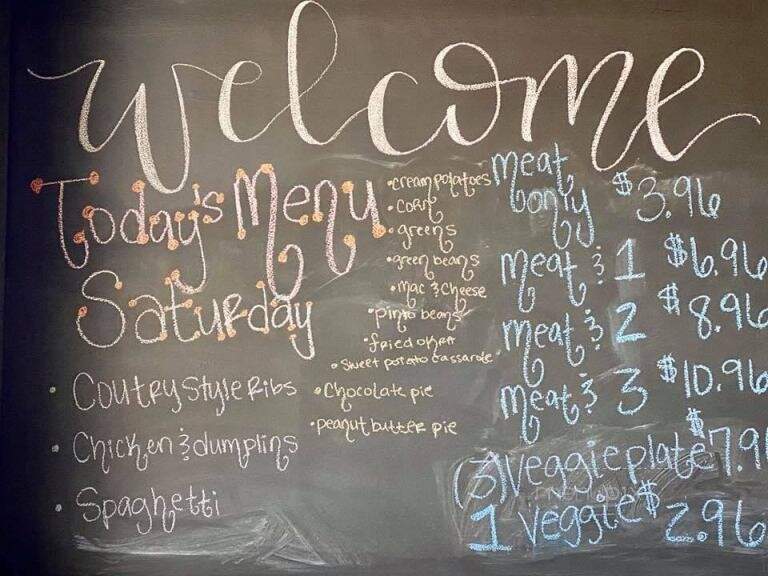 Welcome
Today's Menu
Saturday
• Coutry Style Ribs
• Chicken & dumplins
• Spaghetti
• cream potatoes
• corn
• greens
• green beans
• mac & cheese
• pinto beans
• fried okra
• sweet potato cassarole
• chocolate pie
• peanut butter pie
meat only $3.96
meat & 1 $6.96
meat & 2 $8.96
meat & 3 $10.96
(3) veggie plate $7.96
1 veggie $2.96